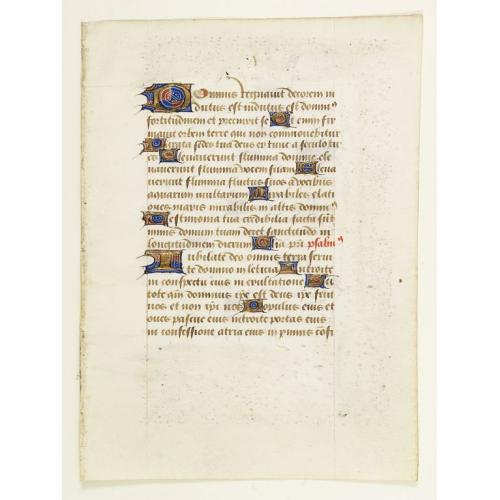 Dominus regnavit decorem in
dutus est indutus est domin⁹
fortitudinem et precinxit se Et enim fir
mavit orbem terre qui non commovebitur
Parata sedes tua deus ex tunc a seculo tu
es Elevaverunt flumina domine ele
vaverunt flumina vocem suam Eleva
verunt flumina fluctus suos a vocibus
aquarum multarum Mirabiles elati
ones maris mirabilis in altis domin⁹
Testimonia tua credibilia facta sūt
nimis domum tuam decet sanctitudo in
longitudinem dierum Gl̄ia pr̄i psalm⁹
Iubilate deo omnis terra servi
te domino in leticia Introite
in conspectu eius in exultatione Sci
tote qm̄ dominus ip̄e est deus ip̄e fecit
nos et non ip̄i nos Populus eius et
oves pascue eius introite portas eius
in confessione atria eius in ymnis cōfi